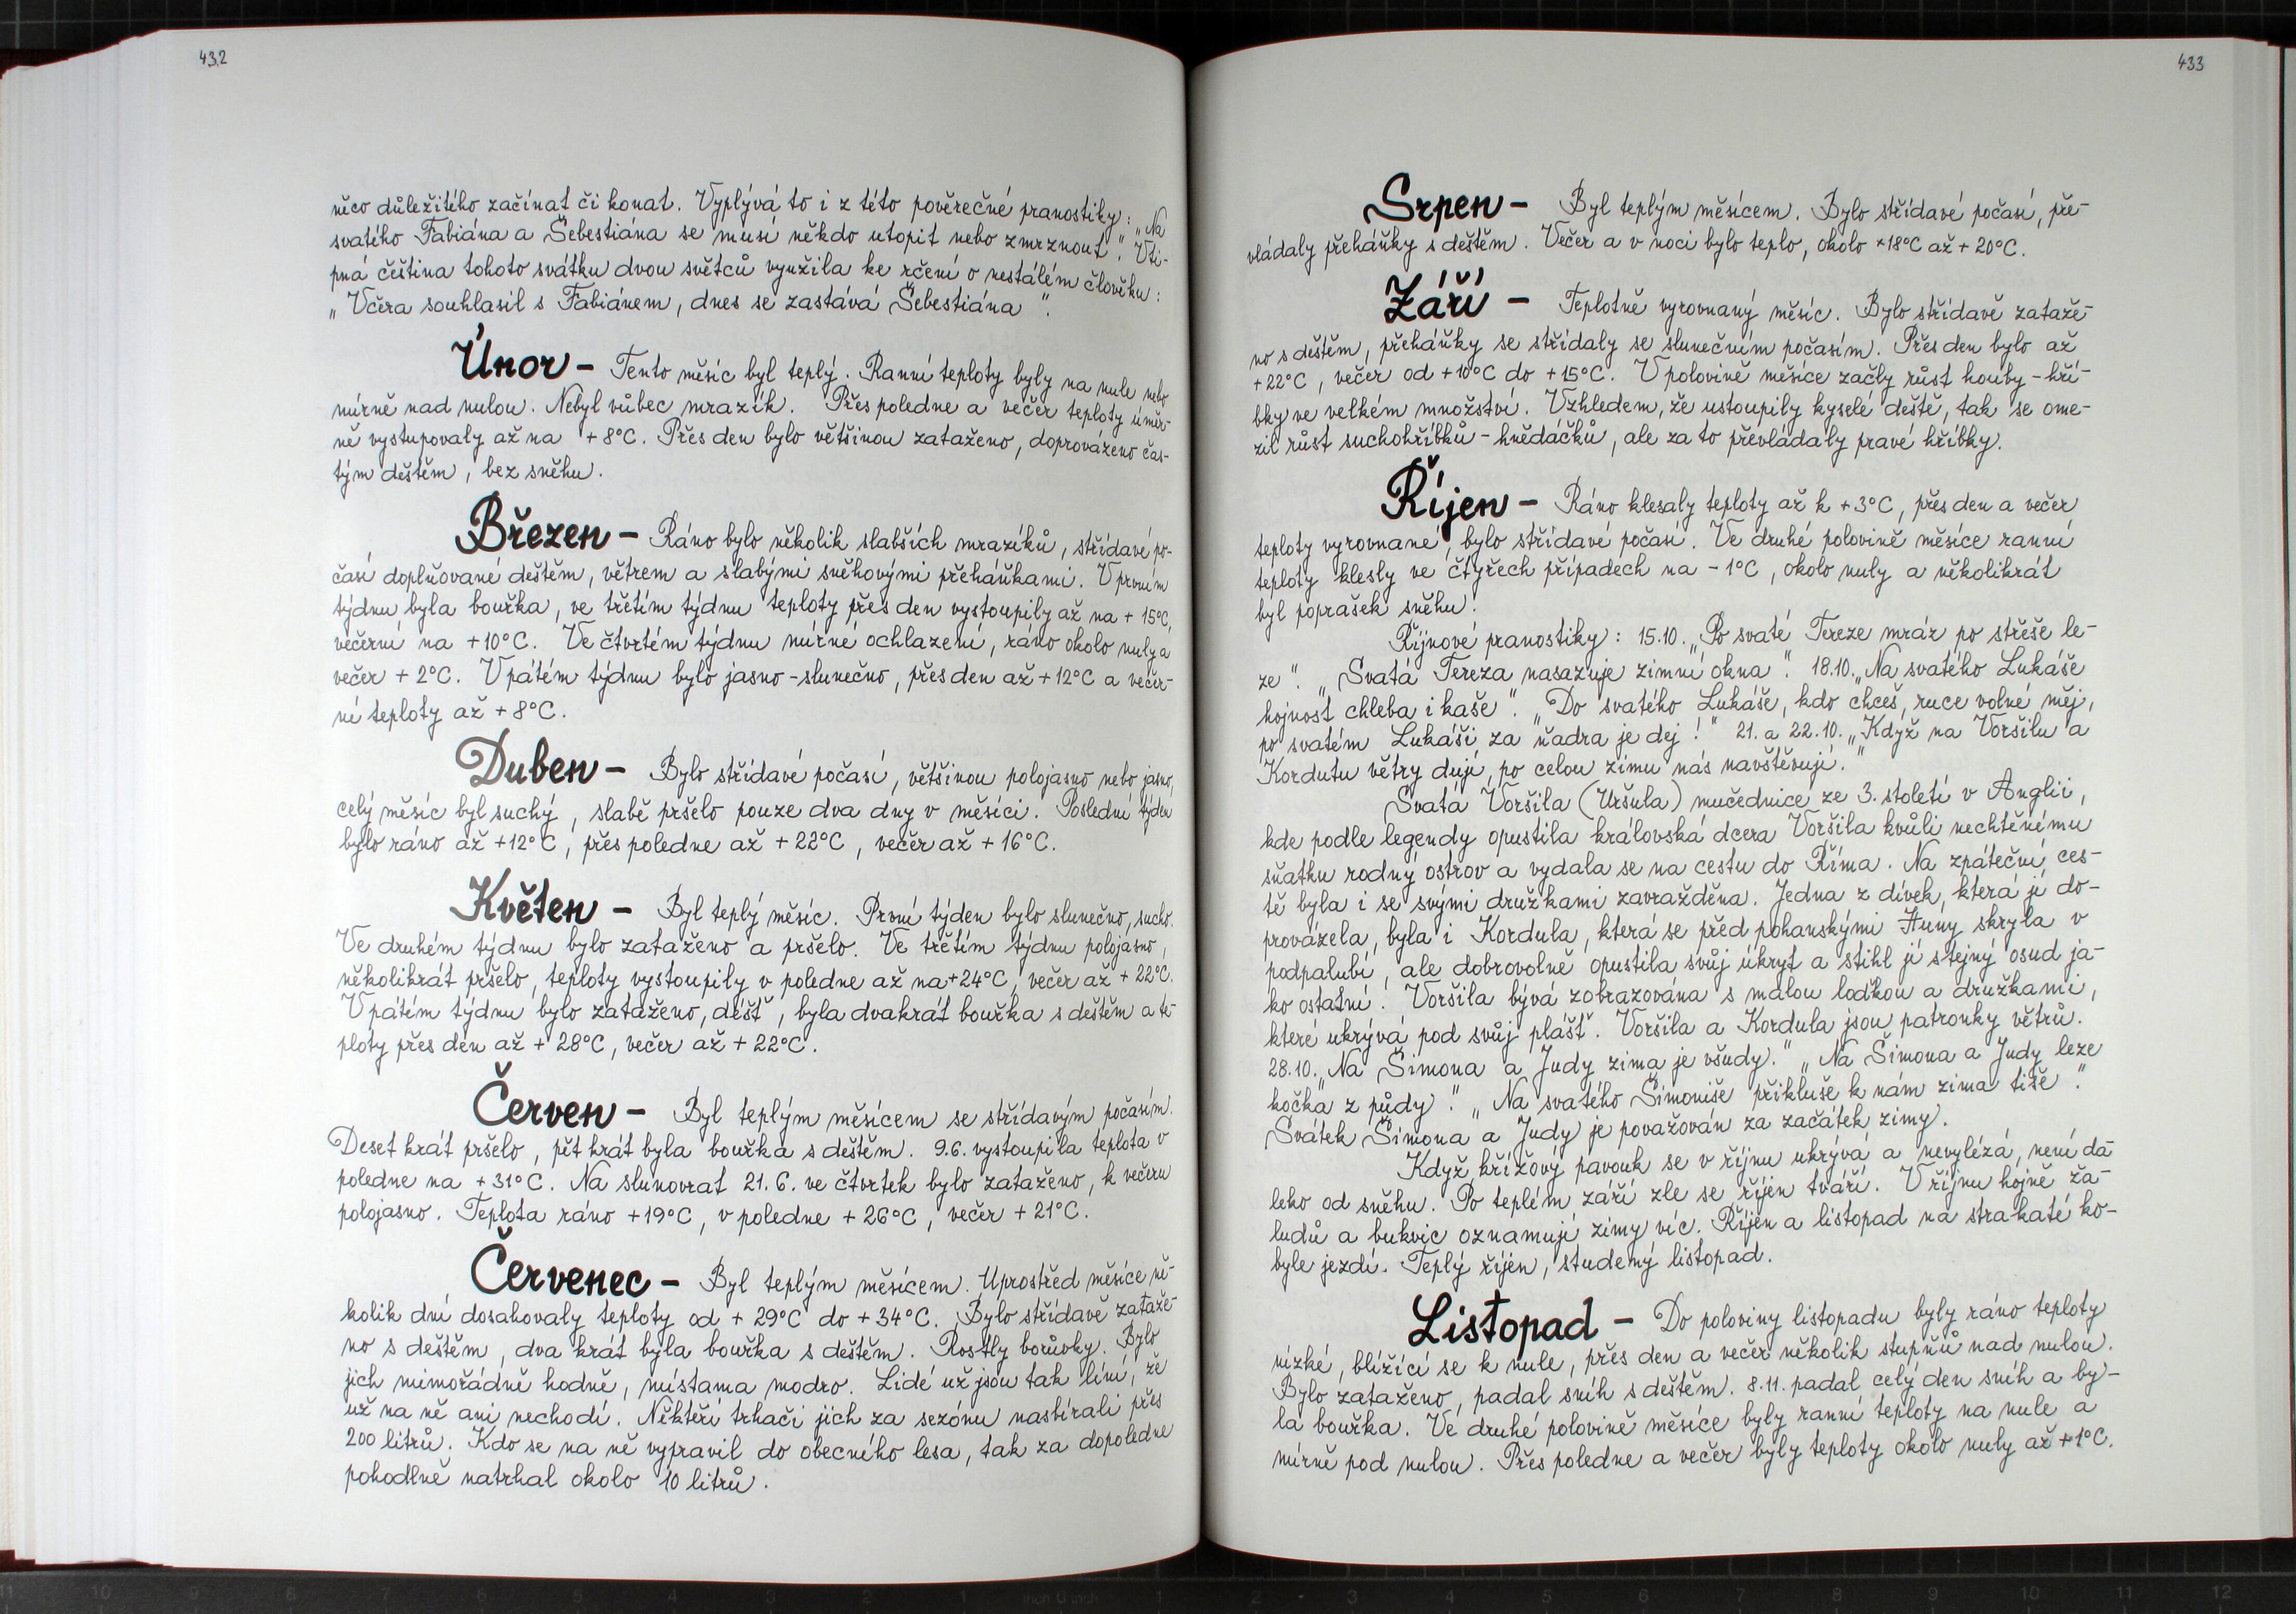 432
něco důležitého začínat či konat. Vyplývá to i z této pověrečné pranostiky: „Na
svatého Fabiána a Šebestiána se musí někdo utopit nebo zmrznout“. Vti-
pná čeština tohoto svátku dvou světců využila ke rčení o nestálém člověku:
„Včera souhlasil s Fabiánem, dnes se zastává Šebestiána“.
Únor – Tento měsíc byl teplý. Ranní teploty byly na nule nebo
mírně nad nulou. Nebyl vůbec mrazík. Přes poledne a večer teploty úměr-
ně vystupovaly až na +8°C. Přes den bylo většinou zataženo, doprovázeno čas-
tým deštěm, bez sněhu.
Březen – Ráno bylo několik slabších mrazíků, střídavé po-
časí doplňované deštěm, větrem a slabými sněhovými přeháňkami. V prvním
týdnu byla bouřka, ve třetím týdnu teploty přes den vystoupily až na +15°C,
večerní na +10°C. Ve čtvrtém týdnu mírné ochlazení, ráno okolo nuly a
večer +2°C. V pátém týdnu bylo jasno-slunečno, přes den až +12°C a večer-
ní teploty až +8°C.
Duben – Bylo střídavé počasí, většinou polojasno nebo jasno,
celý měsíc byl suchý, slabě pršelo pouze dva dny v měsíci. Poslední týden
bylo ráno až +12°C, přes poledne až +22°C, večer až +16°C.
Květen – Byl teplý měsíc. První týden bylo slunečno, sucho.
Ve druhém týdnu bylo zataženo a pršelo. Ve třetím týdnu polojasno,
několikrát pršelo, teploty vystoupily v poledne až na +24°C, večer až +22°C.
V pátém týdnu bylo zataženo, déšť, byla dvakrát bouřka s deštěm a te-
ploty přes den až +28°C, večer až +22°C.
Červen – Byl teplým měsícem se střídavým počasím.
Deset krát pršelo, pět krát byla bouřka s deštěm. 9.6. vystoupila teplota v
poledne na +31°C. Na slunovrat 21.6. ve čtvrtek bylo zataženo, k večeru
polojasno. Teplota ráno +19°C, v poledne +26°C, večer +21°C.
Červenec – Byl teplým měsícem. Uprostřed měsíce ně-
kolik dní dosahovaly teploty od +29°C do +34°C. Bylo střídavě zataže-
no s deštěm, dva krát byla bouřka s deštěm. Rostly borůvky. Bylo
jich mimořádně hodně, místama modro. Lidé už jsou tak líní, že
už na ně ani nechodí. Někteří trhači jich za sezónu nastírali přes
200 litrů. Kdo se na ně vypravil do obecného lesa, tak za dopoledne
pohodlně natrhal okolo 10 litrů.
433
Srpen – Byl teplým měsícem. Bylo střídavé počasí, pře-
vládaly přeháňky s deštěm. Večer a v noci bylo teplo, okolo +18°C až +20°C.
Září – Teplotně vyrovnaný měsíc. Bylo střídavě zataže-
no s deštěm, přeháňky se střídaly se slunečním počasím. Přes den bylo až
+22°C, večer od +10°C do +15°C. V polovině měsíce začly růst houby – hří-
bky ve velkém množství. Vzhledem, že ustoupily kyselé deště, tak se ome-
zil růst suchohříbků – hnědáčků, ale za to převládaly pravé hříbky.
Říjen – Ráno klesaly teploty až k +3°C, přes den a večer
teploty vyrovnané, bylo střídavé počasí. Ve druhé polovině měsíce ranní
teploty klesly ve čtyřech případech na -1°C, okolo nuly a několikrát
byl poprašek sněhu.
Říjnové pranostiky: 15.10. „Po svaté Tereze mráz po střeše le-
ze“. „Svatá Tereza nasazuje zimní okna“. 18.10. „Na svatého Lukáše
hojnost chleba i kaše“. „Do svatého Lukáše, kdo chceš, ruce volné měj,
po svatém Lukáši za ňadra je dej!“ 21. a 22.10. „Když na Voršilu a
Kordutu větry dují, po celou zimu nás navštěvují.“
Svatá Voršila (Uršula) mučednice ze 3. století v Anglii,
kde podle legendy opustila královská dcera Voršila kvůli nechtěnému
sňatku rodný ostrov a vydala se na cestu do Říma. Na zpáteční ces-
tě byla i se svými družkami zavražděna. Jedna z dívek, která jí do-
provázela, byla i Kordula, která se před pohanskými Huny skryla v
podpalubí, ale dobrovolně opustila svůj úkryt a stihl jí stejný osud ja-
ko ostatní. Voršila bývá zobrazována s malou loďkou a družkami,
které ukrývá pod svůj plášť. Voršila a Kordula jsou patronky větrů.
28.10. „Na Šimona a Judy zima je všudy.“ „Na Šimona a Judy leze
kočka z půdy.“ „Na svatého Šimoniše přikluše k nám zima tiše“.
Svátek Šimona a Judy je považován za začátek zimy.
Když křížový pavouk se v říjnu ukrývá a nevylézá, není da-
leko od sněhu. Po teplém září zle se říjen tváří. V říjnu hojně ža-
ludů a bukvic oznamují zimy víc. Říjen a listopad na strakaté ko-
byle jezdí. Teplý říjen, studený listopad.
Listopad – Do poloviny listopadu byly ráno teploty
nízké, blížící se k nule, přes den a večer několik stupňů nad nulou.
Bylo zataženo, padal sníh s deštěm. 8.11. padal celý den sníh a by-
la bouřka. Ve druhé polovině měsíce byly ranní teploty na nule a
mírně pod nulou. Přes poledne a večer byly teploty okolo nuly až +1°C.